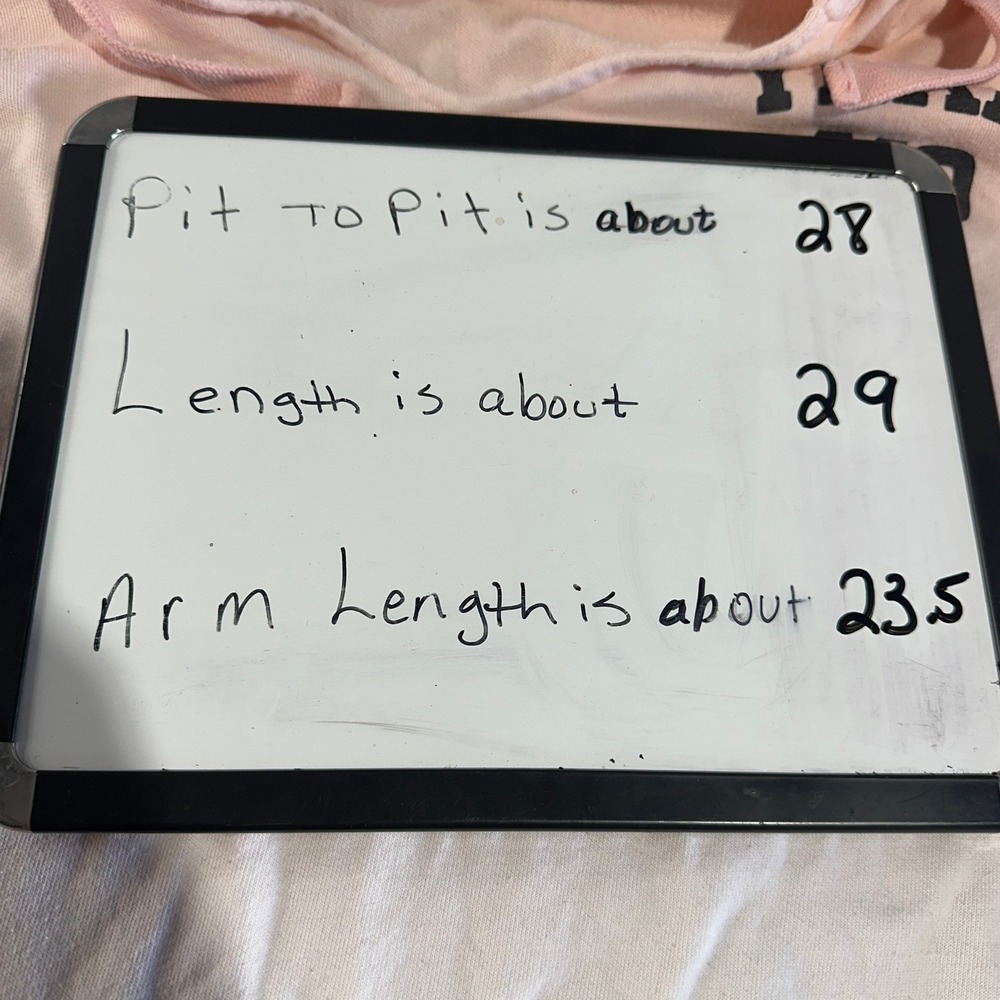 Pit To Pit is about 28
Length is about 29
Arm Length is about 23.5